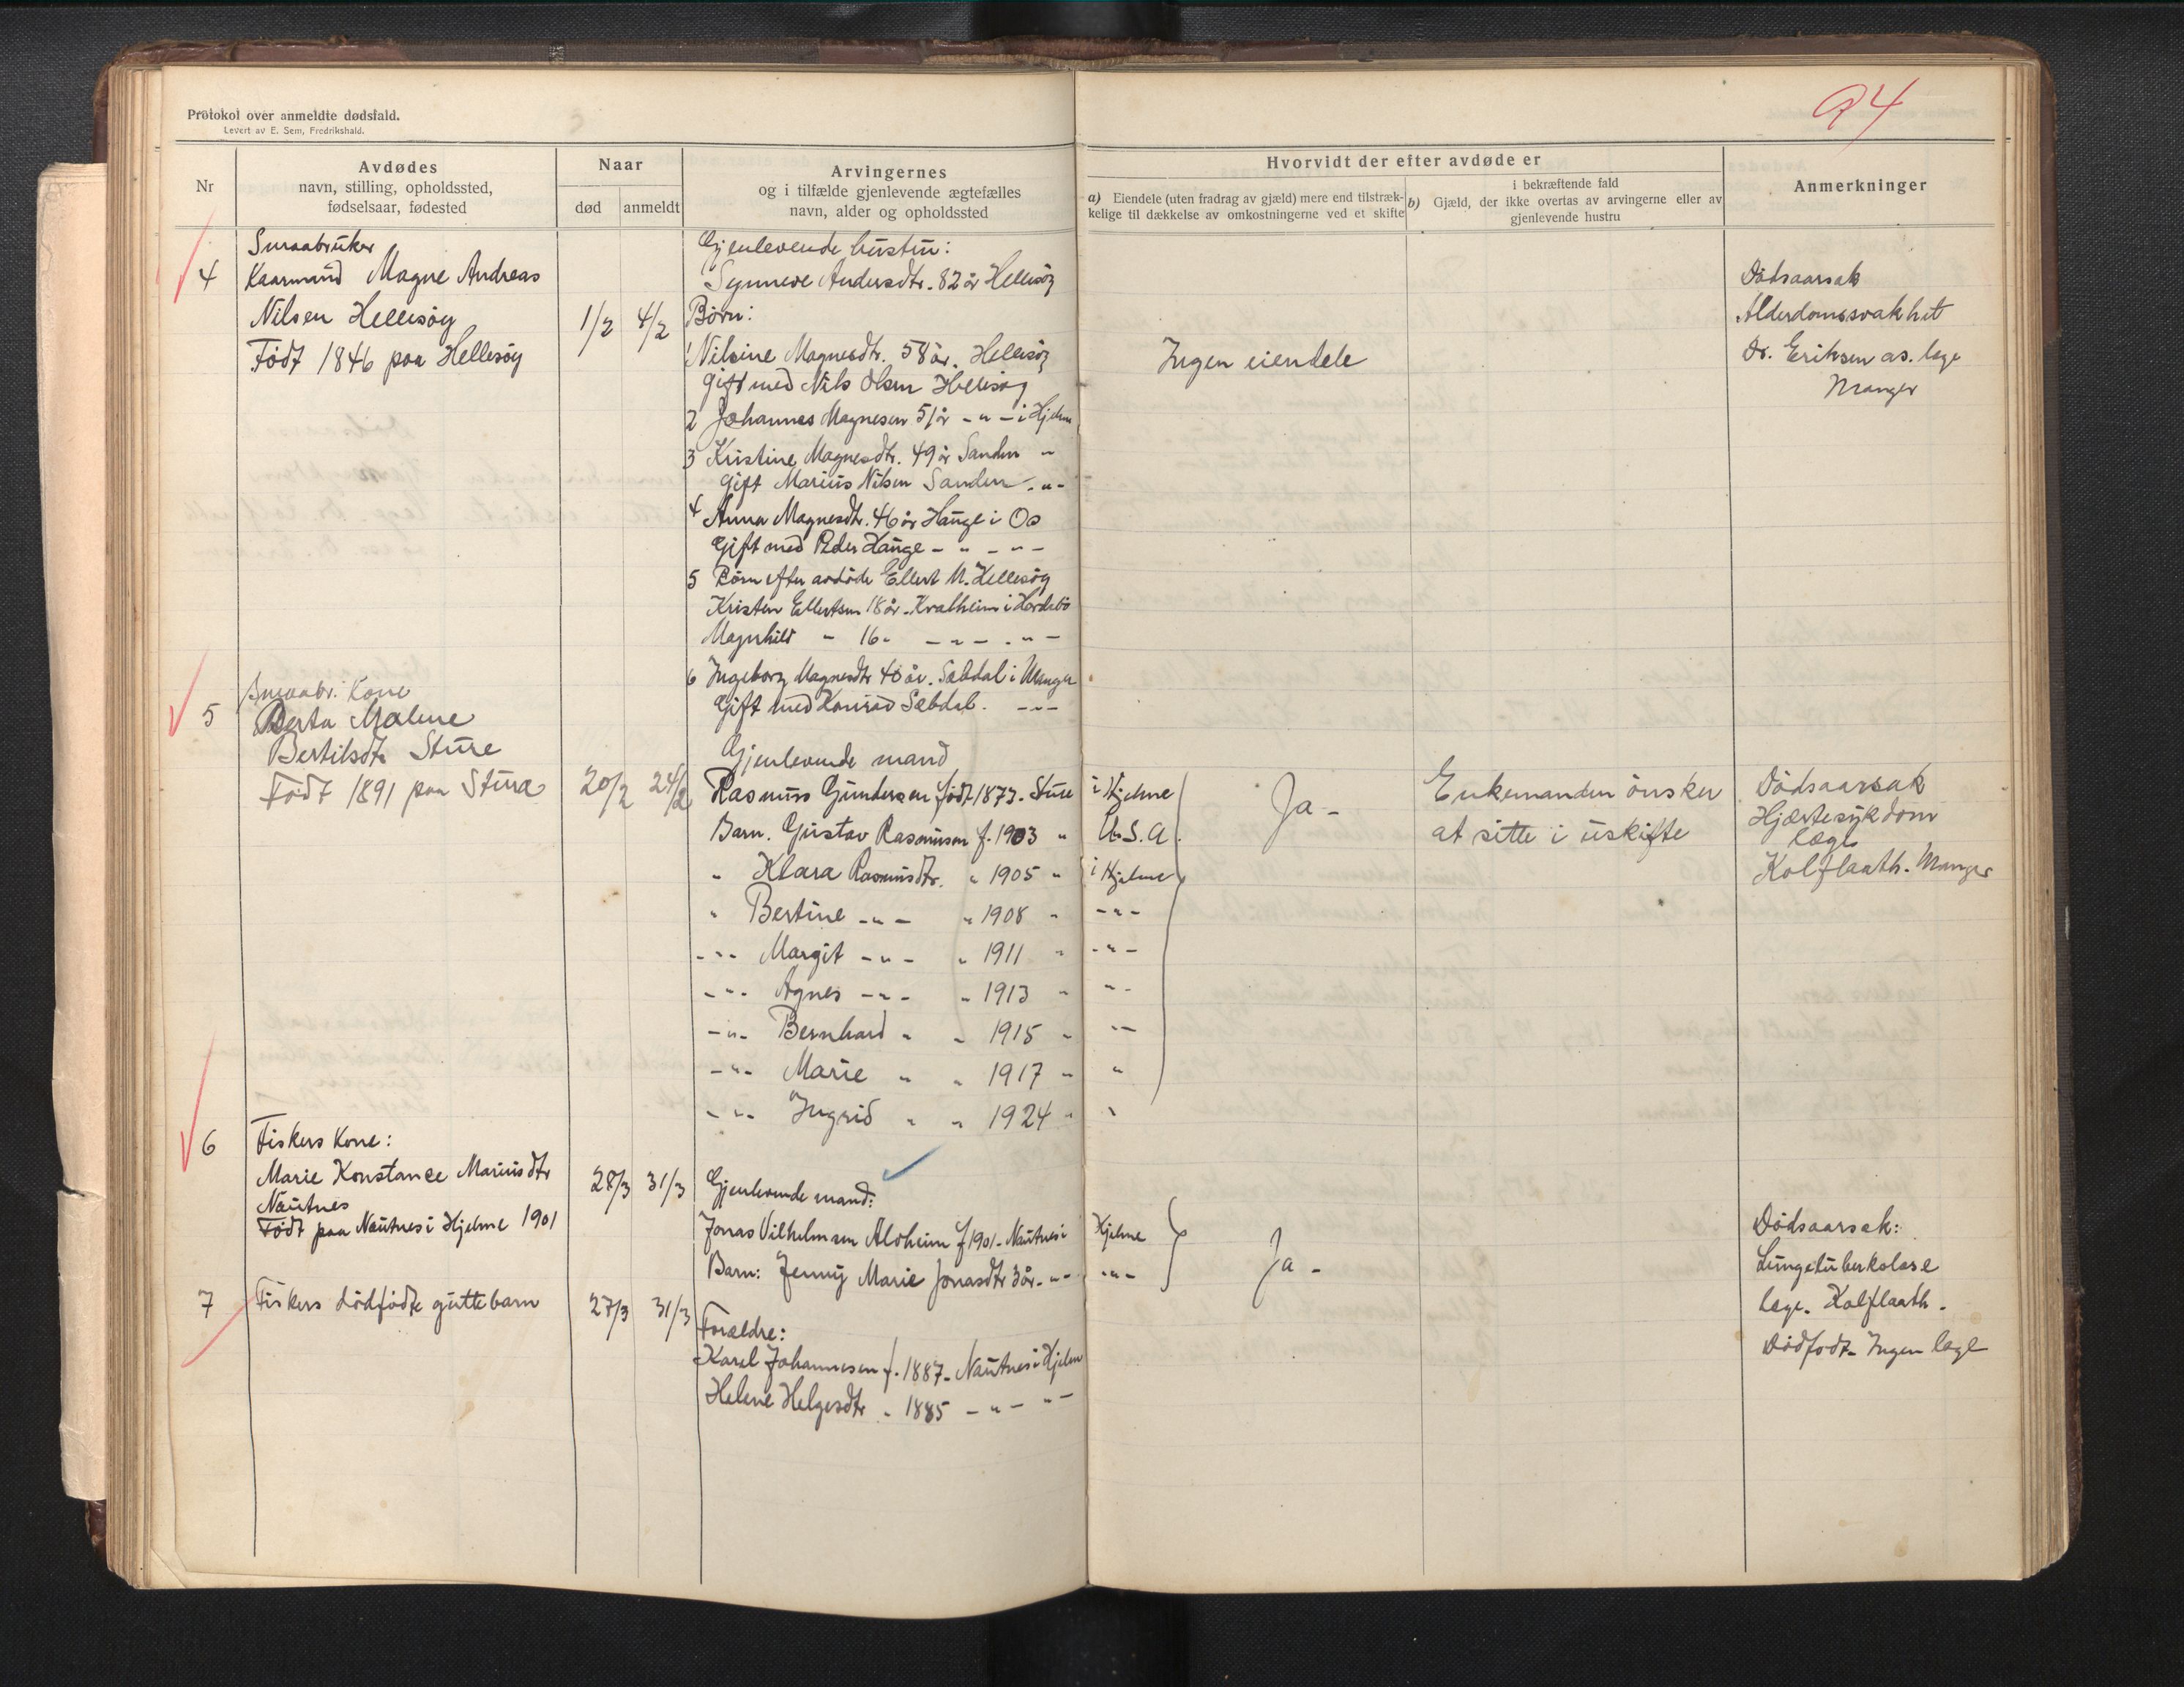 Protokol over anmeldte dødsfald.
Levert av E. Sem, Fredrikshald.
24
Nr
Avdødes
navn, stilling, opholdssted,
fødselsaar, fødested
Naar
død
anmeldt
Arvingernes
og i tilfælde gjenlevende ægtefælles
navn, alder og opholdssted
Hvorvidt der efter avdøde er
a) Eiendele (uten fradrag av gjæld) mere end tilstræk-
kelige til dækkelse av omkostningerne ved et skifte
i bekræftende fald
b) Gjæld, der ikke overtas av arvingerne eller av
gjenlevende hustru
Anmerkninger
4
Smaabruker
Kaarmand Magne Andreas
Nilsen Hellesöy
Född 1846 paa Hellesöy
1/2 4/2
Gjenlevende hustru:
Synneve Andersdtr. 82 år Hellesöy
Börn:
1 Nilsine Magnesdtr. 58 år. Hellesöy
Gift med Nils Olsen Hellesöy
2 Johannes Magnesen 51 år - " - i Hjelme
3 Kristine Magnesdtr. 49 år Sanden "
Gift Marius Nilsen Sanden - " -
4 Anna Magnesdtr. 46 år Hauge i Os
Gift med Peder Hauge - " - " -
5 Börn efter avdöde Ellert M. Hellesöy
Kristen Ellertsen 18 år - Kvalheim i Hordabö
Magnhild " 16 " - " - . " -
6 Ingeborg Magnesdtr 40 år. Sæbdal i Manger
Gift med Konrad Sæbdal. - " -
Ingen eiendele
Dödsaarsak
Alderdomssvakhet
Dr. Eriksen as. læge
Manger
5
Smaabr. Kone
Berta Malene
Bertilsdtr Sture
Född 1891 paa Stura
20/2 24/2
Gjenlevende mand
Rasmus Gundersen född 1873 - Sture i Hjelme
Barn. Gustav Rasmusen f. 1903 " U.S.A.
" Klara Rasmusdtr. " 1905 " i Hjelme
" Bertine - " - " 1908 " - " -
- " - Margit - " - " 1911 " - " -
- " - Agnes - " - " 1913 " " -
- " - Bernhard " " 1915 " " -
- " - Marie " " 1917 " "
- " - Ingrid " " 1924 " "
Ja -
Enkemanden önsker
at sitte i uskifte
Dödsaarsak
Hjærtesykdom
læge
Kolflaath. Manger
6
Fiskers Kone:
Marie Konstance Mariusdtr
Nautnes
Född paa Nautnes i Hjelme 1901
28/3 31/3
Gjenlevende mand:
Jonas Vilhelmsen Alvheim f 1901 - Nautnes i Hjelme
Barn: Jenny Marie Jonasdtr 3 år. - " - - " -
Ja -
Dödsaarsak:
Lungetuberkolose
læge. Kolflaath.
7
Fiskers dödfödte guttebarn
27/3 31/3
Forældre:
Karl Johannesen f. 1887 - Nautnes i Hjelme
Helene Helgesdtr " 1885 - " - " -
Dödfödt - Ingen læge